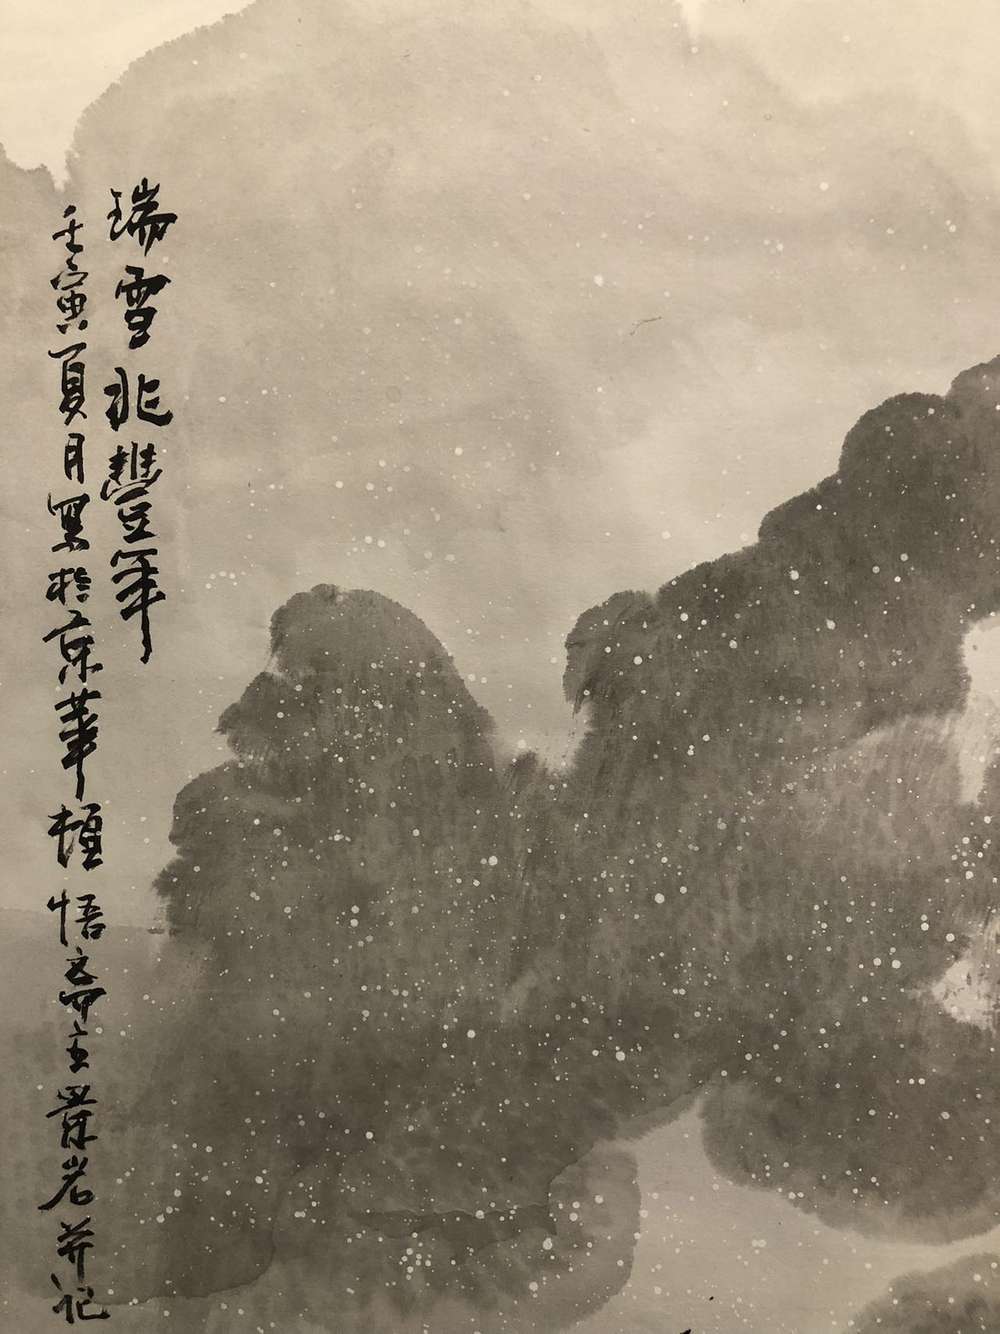 瑞雪兆豐年
壬寅夏月寫於京華頤悟齋主景岩并記